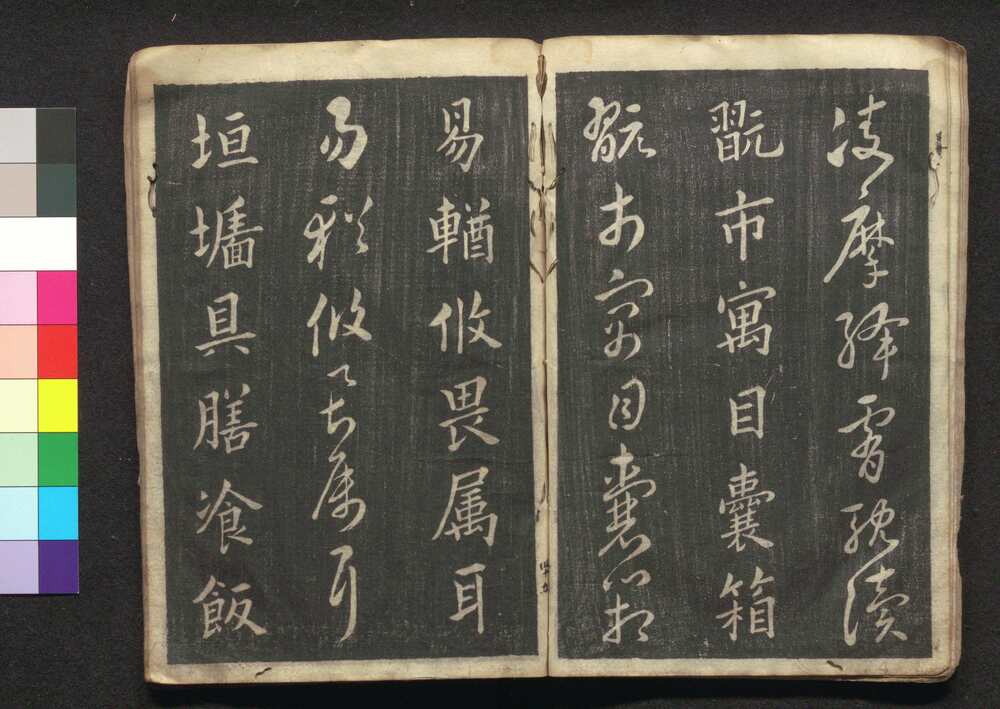 凌摩絳霄耽讀
翫市寓目囊箱
翫市寓目囊箱
易輶攸畏属耳
易輶攸畏属耳
垣墻具膳飡飯